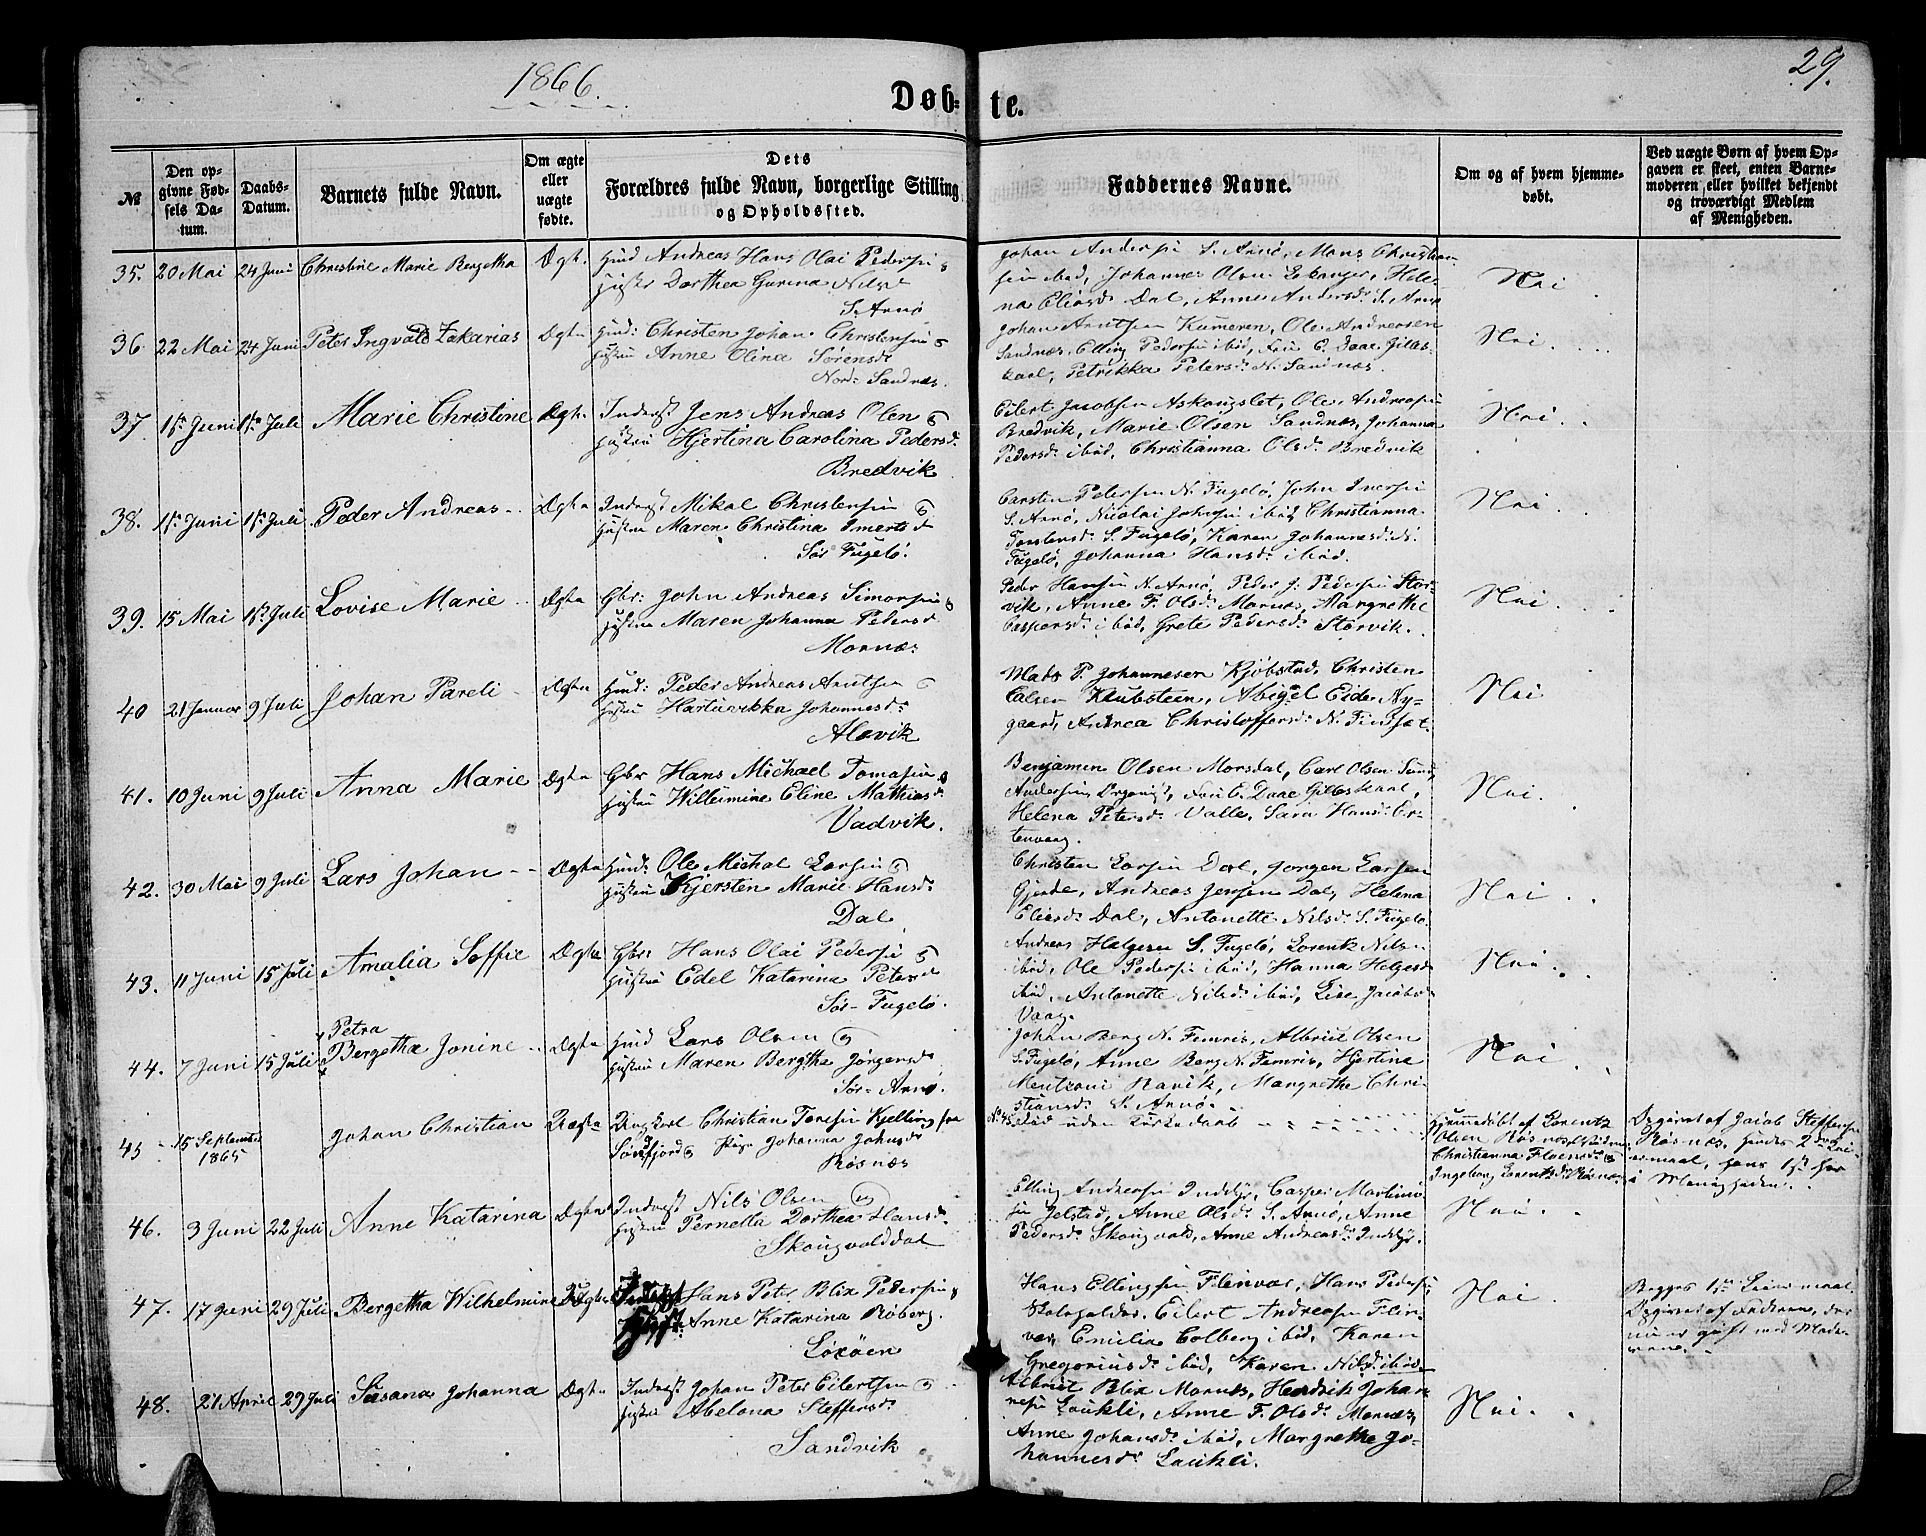 1866.
29.
Døb-te.
№
Den opgivne Fødsels Datum.
Daabs-Datum.
Barnets fulde Navn.
Om ægte eller uægte fødte.
Dets Forældres fulde Navn, borgerlige Stilling og Opholdssted.
Faddernes Navne.
Om og af hvem hjemmedøbt.
Ved uægte Børn af hvem Opgaven er skeet, enten Barnemoderen eller hvilket bekjendt og troværdigt Medlem af Menigheden.
35. 20 Mai 24 Juni Christine Marie Bergetha Ægt. Huusm Andreas Hans Olai Pedersen &
Hustru Dorthea Gurina Nilsd
S. Arnø
Johan Andersen S. Arnø, Mons Christian-
sen ibid, Johannes Olsen Eskanger, Hele-
na Eliasd. Dal, Anne Andersd. S. Arnø
Nei
36. 22 Mai 24 Juni Peter Ingvald Zakarias Ægte Huusm: Christen Johan Christensen &
Hustru Anne Olina Sørensd
Nord: Sandnæs.
Johan Arntsen Kumeren, Ole Andreasen
Sandnæs, Elling Pedersen ibid, Fru C. Daae Gilles-
kaal, Petrikka Petersd. N. Sandnæs.
Nei.
37. 1ste Juni 1ste Juli Marie Christine Ægte. Inderst Jens Andreas Olsen &
Hustru Hjertina Carolina Pedersd.
Bredvik
Eilert Jacobsen Askangslet, Ole Andreasen
Bredvik, Marie Olsen Sandnæs, Johanna
Pedersd. ibid, Christianna Olsd. Bredvik
Nei.
38. 1ste Juni 1ste Juli Peder Andreas Ægte Inderst Mikal Christensen &
Hustru Maren Christina Imertsd
Sør Fugelø.
Carsten Petersen N. Fugelø, John Iversen
S. Arnø, Nicolai Johnsen ibid, Christianna
Torstensd. S. Fugelø, Karen Johannesd. N.
Fugelø, Johanna Hansd. ibid.
Nei.
39. 15 Mai 1ste Juli Lovise Marie Ægte Gbr: John Andreas Simonsen &
Hustru Maren Johanna Pedersd
Mornæs
Peder Hansen N. Arnø, Peder J. Pedersen Stor-
vik, Anne F. Olsd. Mornæs, Margrethe
Caspersd. ibid, Grete Pedersd. Storvik.
Nei.
40 21 Januar 9 Juli Johan Pareli Ægte Huusm: Peder Andreas Arntsen &
Hustru Hartvikka Johannesd:
Alsvik
Mads P. Johannesen Kjøbstad, Christen
Calsen Klubsteen, Abigel Eide Ny-
gaard, Andrea Christoffersd. N. Finset.
Nei
41. 10 Juni 9 Juli Anna Marie Ægte Gbr Hans Michael Tomasen &
Hustru Willumine Eline Mathiasd.
Vadvik.
Benjamin Olsen Morsdal, Carl Olsen Sund,
Andersen Organist, Fru C. Daae Gilleskaal,
Helena Petersd. Valle, Sara Hansd. Er-
tenvaag.
Nei.
42. 30 Mai 9 Juli Lars Johan Ægte Huusm: Ole Michal Larsen &
Hustru Kjersten Marie Hansd:
Dal
Christen Larsen Dal, Jørgen Larsen
Gjerde, Andreas Jensen Dal, Helena
Eliasd. Dal, Antonette Nilsd. S. Fugelø.
Nei.
43. 11 Juni 15 Juli Amalia Soffie Ægte Gbr: Hans Olai Pedersen &
Hustru Edel Katarina Petersd
Sør-Fugelø.
Andreas Helgesen S. Fugelø, Lorents Nils-
ibid, Ole Pedersen ibid, Hanna Helgesd
ibid, Antonette Nilsd. ibid, Lise Jacobsd
Vaag.
Nei.
44. 7 Juni 15 Juli Petra
Bergetha Jonine Ægte Huusm Lars Olsen &
Hustru Maren Bergthe Jørgensd
Sør-Arnø.
Johan Berg N. Femris, Albrict Olsen
S. Fugelø, Anne Berg N. Femris, Hjertine
Mentzoni Navik, Margrethe Chri-
stiansd. S. Arnø.
Nei
45 15 September
1865 Johan Christian Uægte Ungkarl Christian Toresen Kjelling fra
Sørfjord & Pige Johanna Johnsd
Røsnæs
død uden Kirkedaab
Hjemmedøbt af Lorentz
Olsen Røsnæs,
Christianna
Ingeborg Lorentzd. Røsnæs
Opgivet af Jacob Steffensen
Røsnæs, hendes 2det Lei-
ermaal, hans 1ste her
i Menigheden.
46. 3 Juni 22 Juli Anne Katarina Ægte Inderst Nils Olsen &
Hustru Pernella Dorthea Hansd.
Skougvolddal
Elling Andreasen Inddyr, Casper Martinu-
sen Jelstad, Anne Olsd. S. Arnø, Anne
Pedersd. Skougvold, Anne Andreasd. Inddyr.
Nei.
47. 17 Juni 29 Juli Bergetha Wilhelmine Uægte Hans Peter Blix Pedersen &
Anne Katarina Røberg.
Løxøen
Hans Ellingsen Fleinvær, Hans Pedersen
Eilert Andreasen Flein-
vær, Emilia Colberg ibid, Karen
Gregoriusd. ibid, Karen Nilsd. ibid
Nei
Begges 1ste Leiermaal.
Opgivet af Faderen, der
nu er gift med Mode-
ren.
48. 21 April 29 Juli Susana Johanna Ægte Inderst Johan Peter Eilertsen &
Hustru Abelona Steffensd.
Sandvik
Albrict Blix Mornæs, Hendrik Johan-
nesen Laukli, Anne F. Olsd. Mornæs,
Anne Johansd. ibid, Margrethe Jo-
hannesd. Laukli.
Nei.